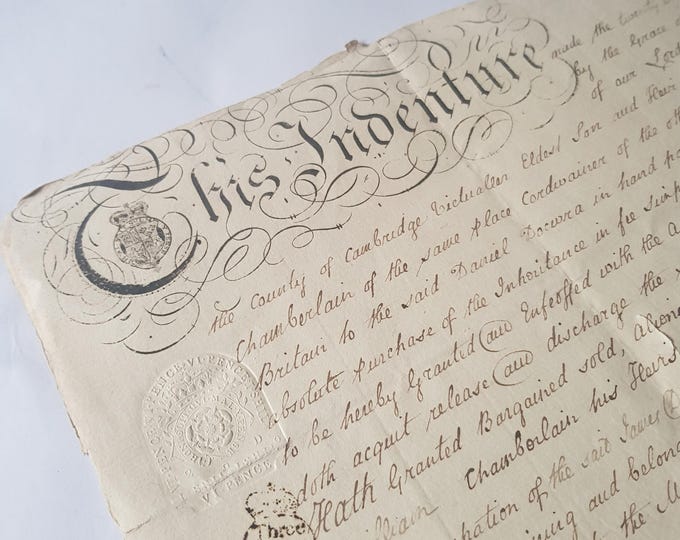 This Indenture made the twenty
by the Grace of
of our Lord
the County of Cambridge Victualler Eldest Son and Heir
Chamberlain of the same place Cordwainer of the oth
Britain to the said Daniel Docwra in hand pa
absolute purchase of the Inheritance in fee simp
to be hereby Granted and Enfeoffed with the a
doth acquit release and discharge the s
Hath Granted Bargained sold, aliene
William Chamberlain his Heirs
pation of the said James
ning and belon
the M
VI PENCE
Three